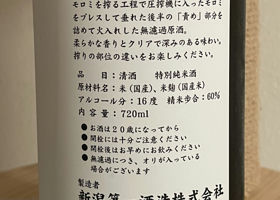 モロミを搾る工程で圧搾機に入ったモロミ
をプレスして垂れた後半の「責め」部分を
詰めて火入れした無濾過原酒。
柔らかな香りとクリアで深みのある味わい。
搾りの部位の違いをお楽しみください。
品 目：清酒 特別純米酒
原材料名：米（国産）、米麹（国産米）
アルコール分：16度 精米歩合：60%
内 容 量：720ml
●お酒は20歳になってから
●開栓には十分ご注意ください
●開栓後はお早めにお飲みください
●無濾過につき、オリが入っている
場合がございます
製造者
新潟第一酒造株式会社